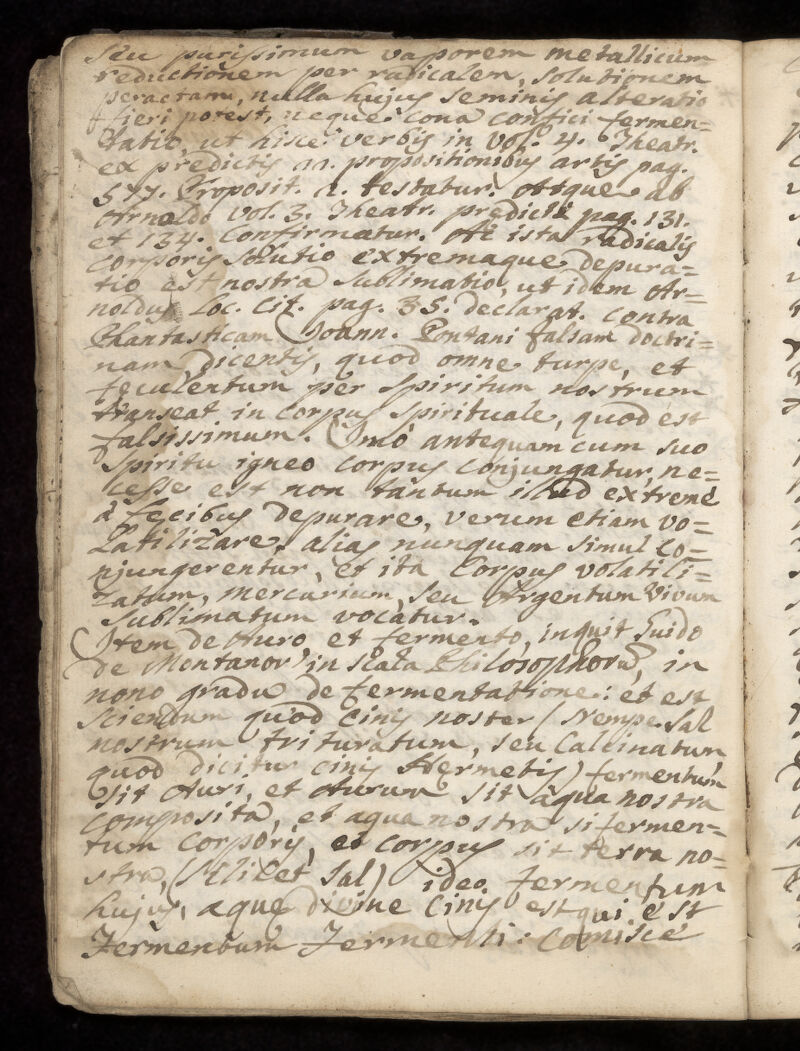 seu purissimum vaporem metallicum
reductionem per radicalem, solutionem
peractam, nulla hujus seminis alteratio
fieri potest, neque cona confici fermen=
tatio, ut hisce verbis in vol. 4. Theatr.
ex predictis propositionibus artis pag.
577. Proposit. 2. testatur. Atque ab
Arnoldo Vol. 3. Theatr. predicti pag. 131.
et 134. Confirmatur. At ista radicalis
corporis solutio extremaque depura=
tio est nostra Sublimatio, ut idem Ar=
noldus Loc. Cit. pag. 35. declarat. Contra
Phantasticam Joann. Pontani falsam doctri=
nam dicentis, quod omne turpe, et
feculentum per Spiritum nostrum
transeat in Corpus Spirituale, quod est
falsissimum. Imò antequam cum suo
Spiritu igneo corpus conjungatur, ne=
cesse est non tantum illud extremè
à fecibus depurare, verum etiam vo=
latilizare, alias nunquam simul co=
njungerentur, et ita Corpus volatili=
zatum, mercurium, seu Argentum Vivum
Sublimatum vocatur.
Item de Auro et fermento, inquit Guido
de Montanor in Scala Philosophorū, in
nono gradu de fermentatione: et est
Sciendum quod Cinis noster (Nempe Sal
nostrum trituratum, seu Calcinatum
quod dicitur Cinis Hermetis) fermentum
sit Auri, et Aurum sit aqua nostra
composita, et aqua nostra si fermen=
tum Corporis, et corpus sit terra no=
stra, (Scilicet Sal) ideo fermentum
hujus, aque divine Cinis est qui est
Fermentum Fermenti: Comisce